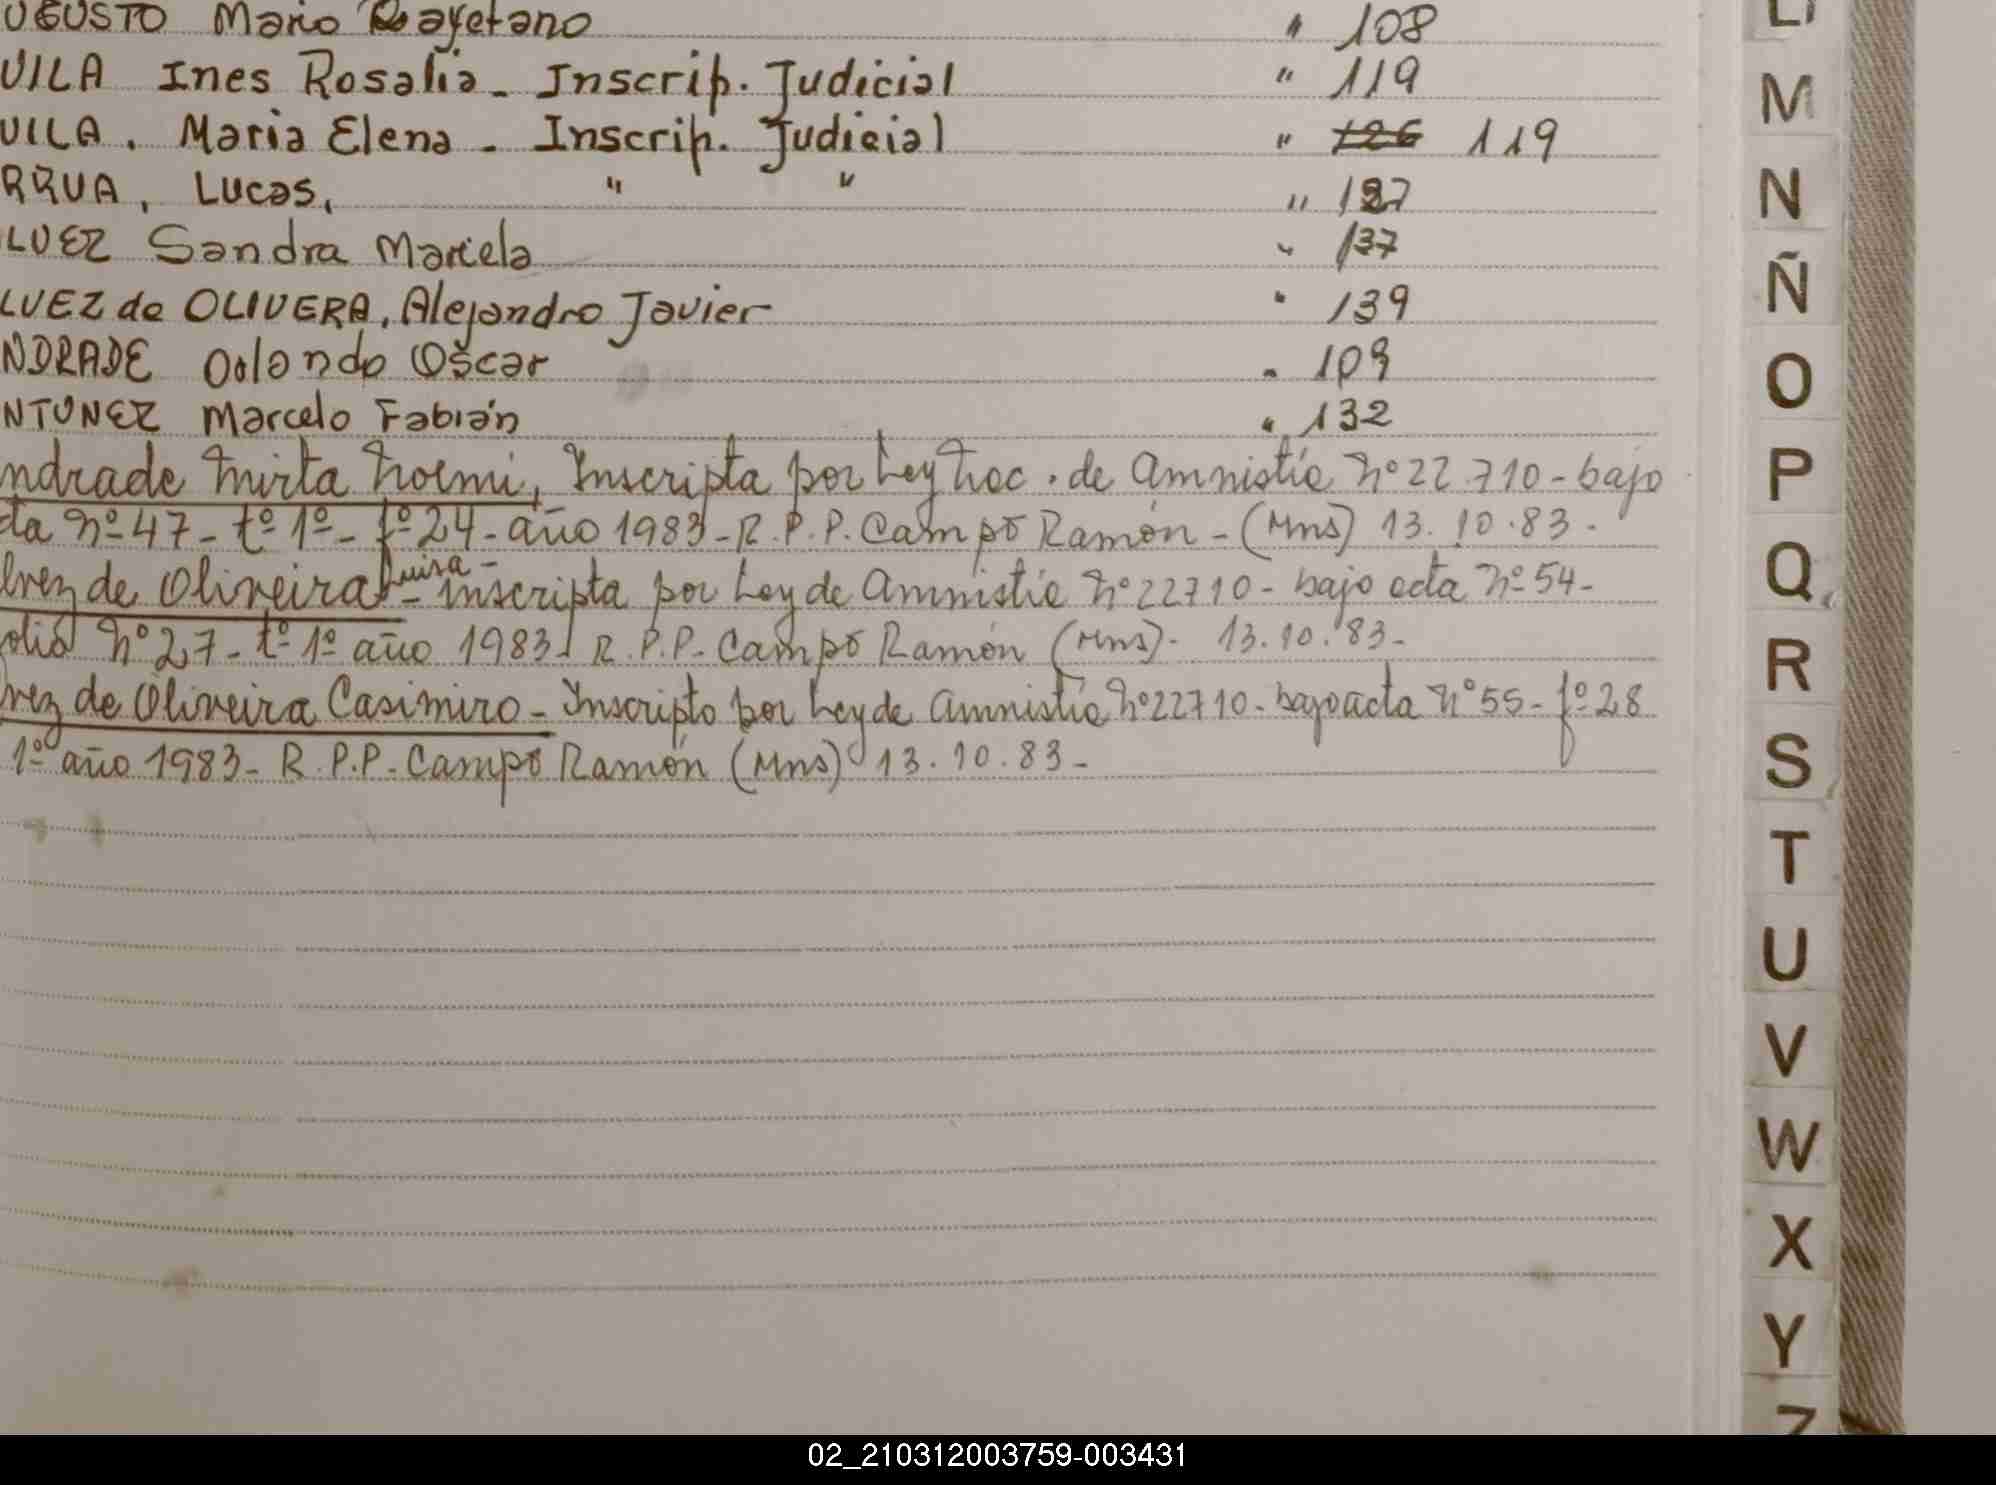 UGUSTO Mario Cayetano " 108
VILA Ines Rosalia - Inscrip. Judicial " 119
VILA, Maria Elena - Inscrip. Judicial " 126 119
RRUA, Lucas, " " " 127
LUEZ Sandra Mariela " 137
LUEZ de OLIVERA, Alejandro Javier " 139
NDRADE Orlando Oscar " 109
NTUNEZ Marcelo Fabián " 132
ndrade Mirta Noemi, Inscripta por Ley Nac. de Amnistía Nº 22.710 - bajo
ta Nº 47 - tº 1º - fº 24 - año 1983 - R.P.P. Campo Ramón - (Mns) 13.10.83.
lvez de Oliveira Luisa - inscripta por Ley de Amnistía Nº 22710 - bajo acta Nº 54 -
olio Nº 27 - tº 1º año 1983 - R.P.P. Campo Ramón (Mns) - 13.10.83 -
vez de Oliveira Casimiro - Inscripto por Ley de Amnistía Nº 22710 - bajo acta Nº 55 - fº 28
1º año 1983 - R.P.P. - Campo Ramón (Mns) 13.10.83 -
M
N
Ñ
O
P
Q
R
S
T
U
V
W
X
Y
Z
02_210312003759-003431